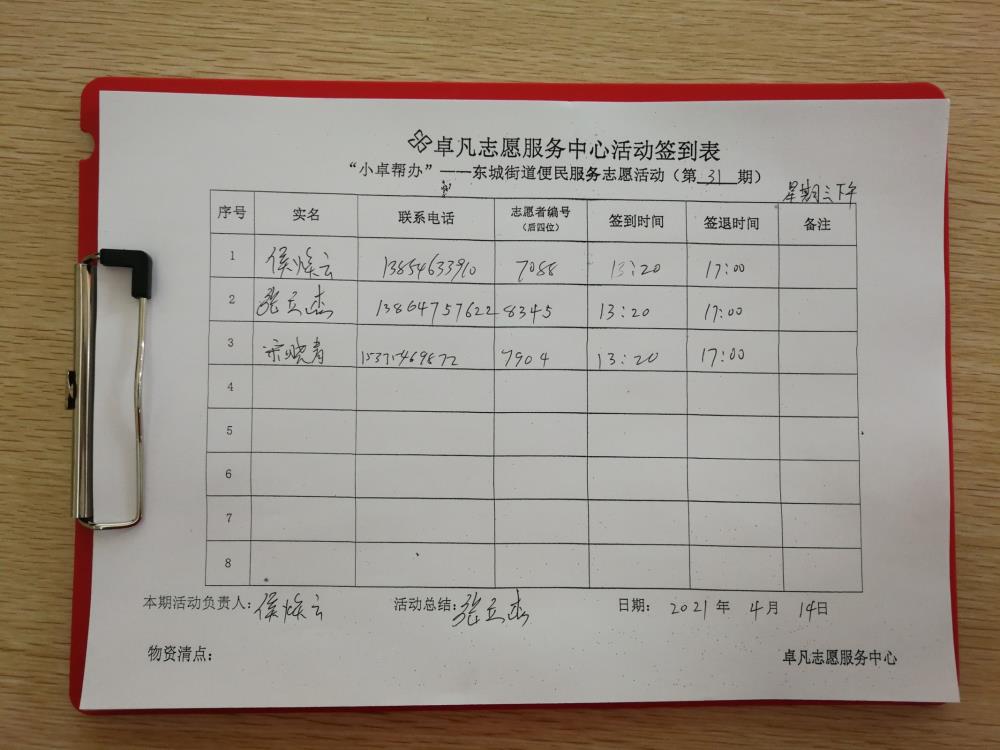 卓凡志愿服务中心活动签到表
“小卓帮办”——东城街道便民服务志愿活动（第 31 期）
星期三下午
序号 实名 联系电话 志愿者编号（后四位） 签到时间 签退时间 备注
1 侯焕云 13854633910 7088 13:20 17:00
2 张立杰 13864757622 8345 13:20 17:00
3 宋晓青 7904 13:20 17:00
4
5
6
7
8
本期活动负责人：侯焕云 活动总结：张立杰 日期： 2021 年 4 月 14日
物资清点： 卓凡志愿服务中心